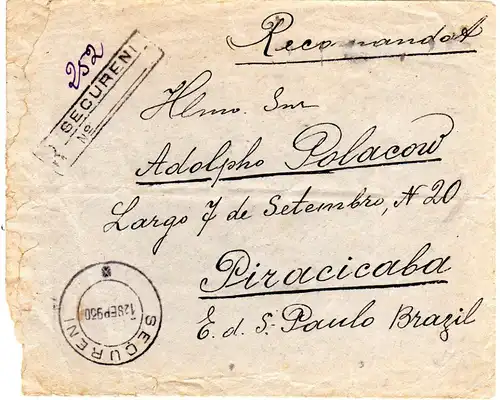 Recomandat
252
R SECURENI
No
Hlmo. Snr
Adolpho Polacow
Largo 7 de Setembro, N 20
Piracicaba
E. d. S. Paulo Brazil
SECURENI
12 SEP 930